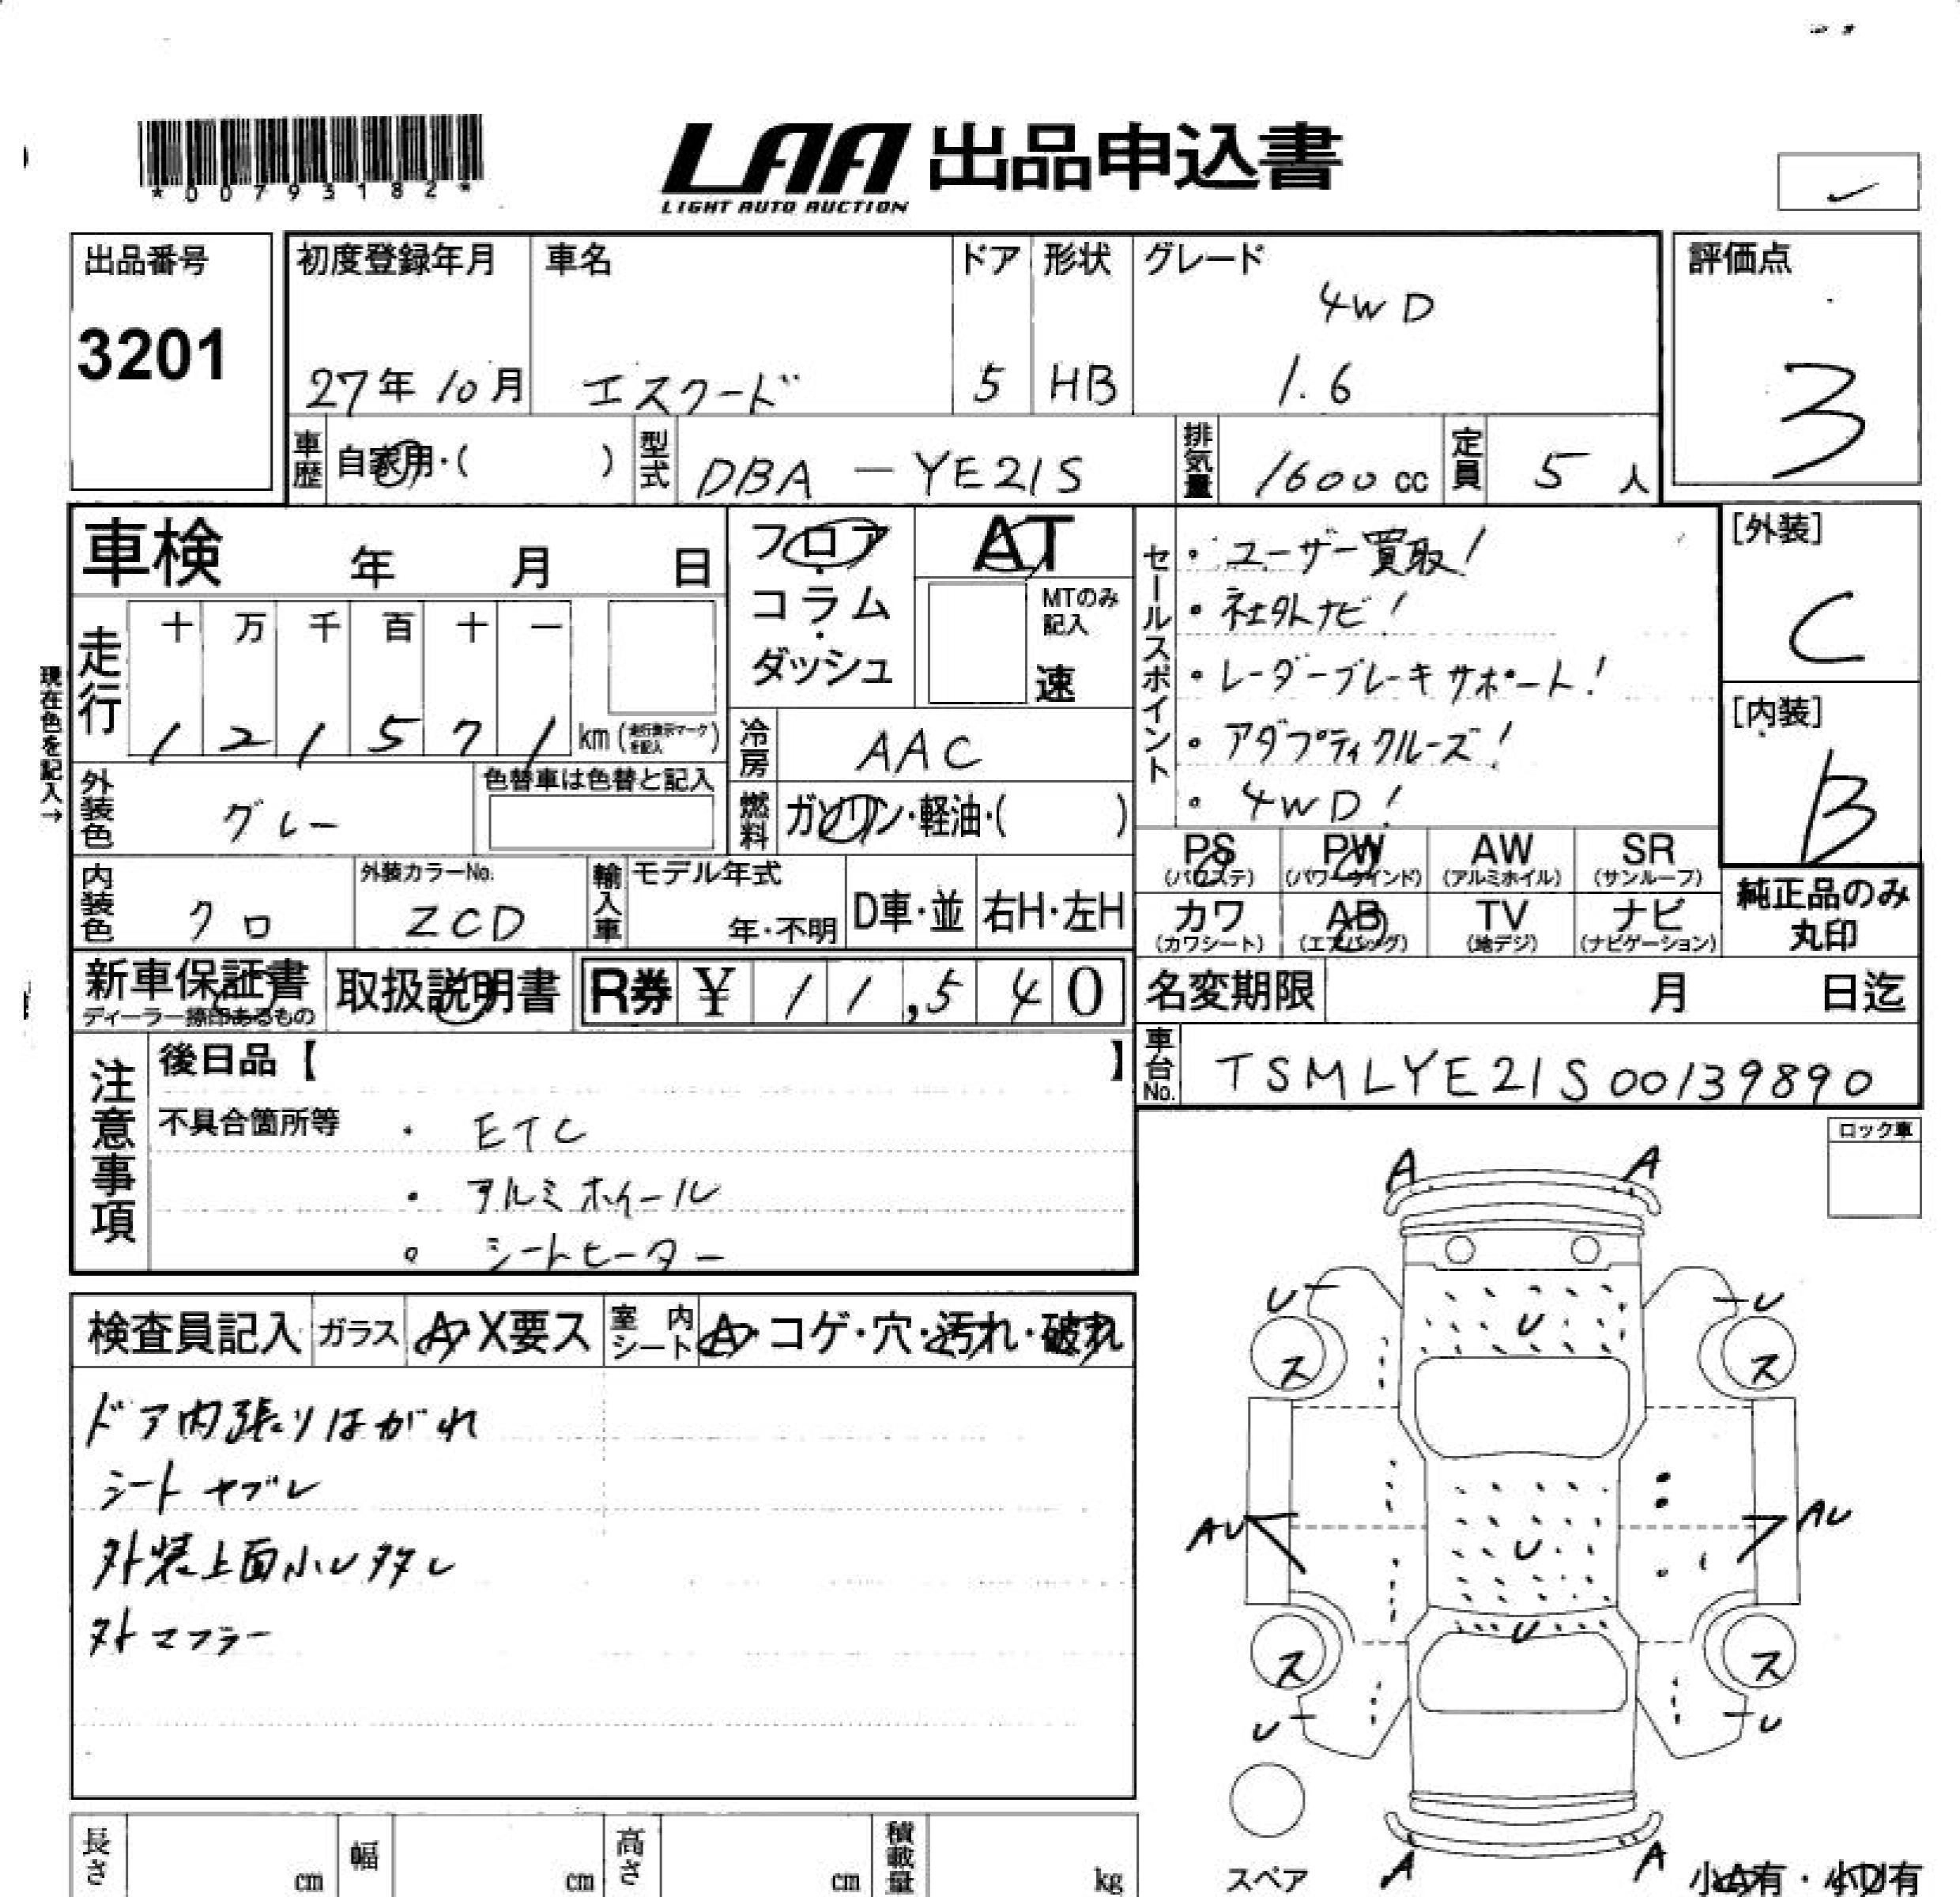 *00793182*
LAA 出品申込書
LIGHT AUTO AUCTION
出品番号
3201
初度登録年月
27年 10月
車名
エスクード
ドア
5
形状
HB
グレード
4WD
1.6
評価点
3
車歴 自家用・( )
型式 DBA - YE21S
排気量 1600 cc
定員 5 人
車検 年 月 日
フロア・コラム・ダッシュ
AT
MTのみ記入
速
走行
十 万 千 百 十 一
1 2 1 5 7 1 km (走行表示マークを記入)
現在色を記入→
外装色 グレー
色替車は色替と記入
冷房 AAC
燃料 ガソリン・軽油・( )
セールスポイント
・ユーザー買取!
・社外ナビ!
・レーダーブレーキサポート!
・アダプティクルーズ!
・4WD!
[外装]
C
[内装]
B
内装色 クロ
外装カラーNo.
ZCD
輸入車 モデル年式
年・不明
D車・並
右H・左H
PS (パワステ)
PW (パワーウインド)
AW (アルミホイル)
SR (サンルーフ)
カワ (カワシート)
AB (エアバッグ)
TV (地デジ)
ナビ (ナビゲーション)
純正品のみ丸印
新車保証書
ディーラー捺印あるもの
取扱説明書
R券 ¥ 11,540
名変期限 月 日迄
車台No. TSMLYE21S00139890
注意事項
後日品【 】
不具合箇所等 ・ ETC
・ アルミホイール
・ シートヒーター
ロック車
検査員記入 ガラス A・X要ス 室内シート A・コゲ・穴・汚れ・破れ
ドア内張りはがれ
シートヤブレ
外装上面小U多し
外マフラー
A A
U U
U
ス ス
AU AU
U
U
ス ス
U U
A A
スペア
小A有・小U有
長さ cm
幅 cm
高さ cm
積載量 kg